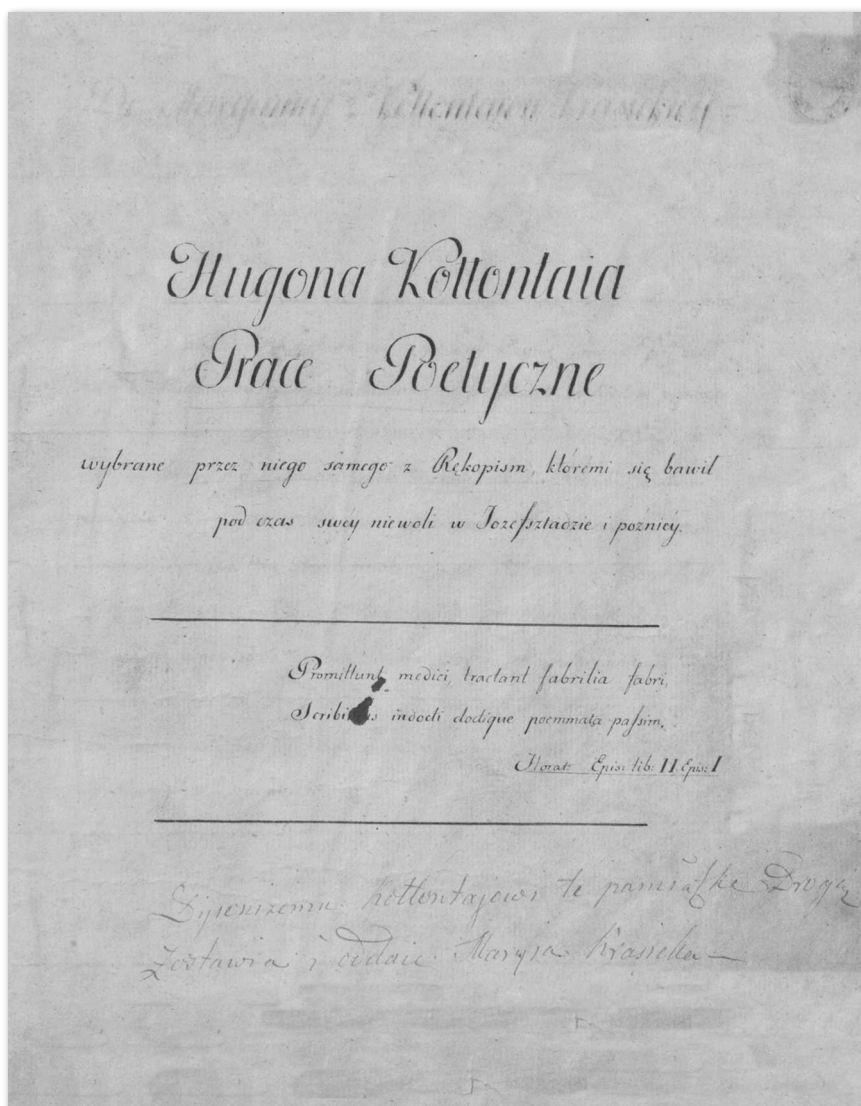 Maryanny z Kołłontaiow Krasickiey
Hugona Kołłontaia
Prace Poetyczne
wybrane przez niego samego z Rękopism, któremi się bawił
pod czas swéy niewoli w Jozefsztadzie i poźniéy.
Promittunt medici, tractant fabrilia fabri,
indocti doctique poemmata passim.
Horat: Epis: lib: II. Epis: I
Kołłontajowi te pamiątkę Drogą
Zostawia i oddaie Marysia Krasicka —